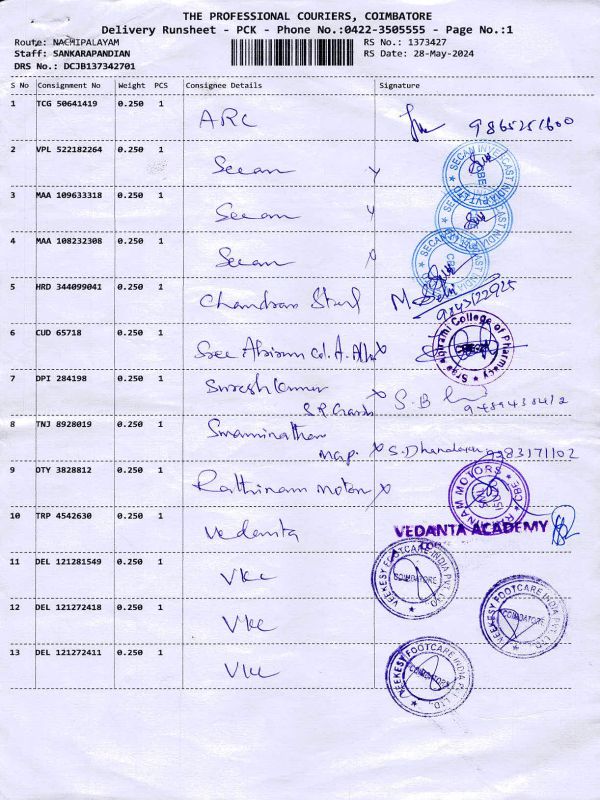 THE PROFESSIONAL COURIERS, COIMBATORE
Delivery Runsheet - PCK - Phone No.:0422-3505555 - Page No.:1
Route: NACHIPALAYAM RS No.: 1373427
Staff: SANKARAPANDIAN RS Date: 28-May-2024
DRS No.: DCJB137342701
S No Consignment No Weight PCS Consignee Details Signature
1 TCG 50641419 0.250 1 ARC 9865251600
2 VPL 522182264 0.250 1 Secan SECAN INVESCAST INDIA PVT LTD
3 MAA 109633318 0.250 1 Secan
4 MAA 108232308 0.250 1 Secan
5 HRD 344099041 0.250 1 Chandran Steel 9843122925
6 CUD 65718 0.250 1 Sree Abirami Col. Sree Abirami College of Pharmacy
7 DPI 284198 0.250 1 Sureshkumar S.B
8 TNJ 8928019 0.250 1 Swaminathan S. Dhandapani
9 OTY 3828812 0.250 1 Rathinam Motors RATHINAM MOTORS CBE
10 TRP 4542630 0.250 1 Vedanta VEDANTA ACADEMY
11 DEL 121281549 0.250 1 VKC VEEKESY FOOTCARE INDIA PVT. LTD COIMBATORE
12 DEL 121272418 0.250 1 VKC VEEKESY FOOTCARE INDIA PVT. LTD COIMBATORE
13 DEL 121272411 0.250 1 VKC VEEKESY FOOTCARE INDIA PVT. LTD COIMBATORE